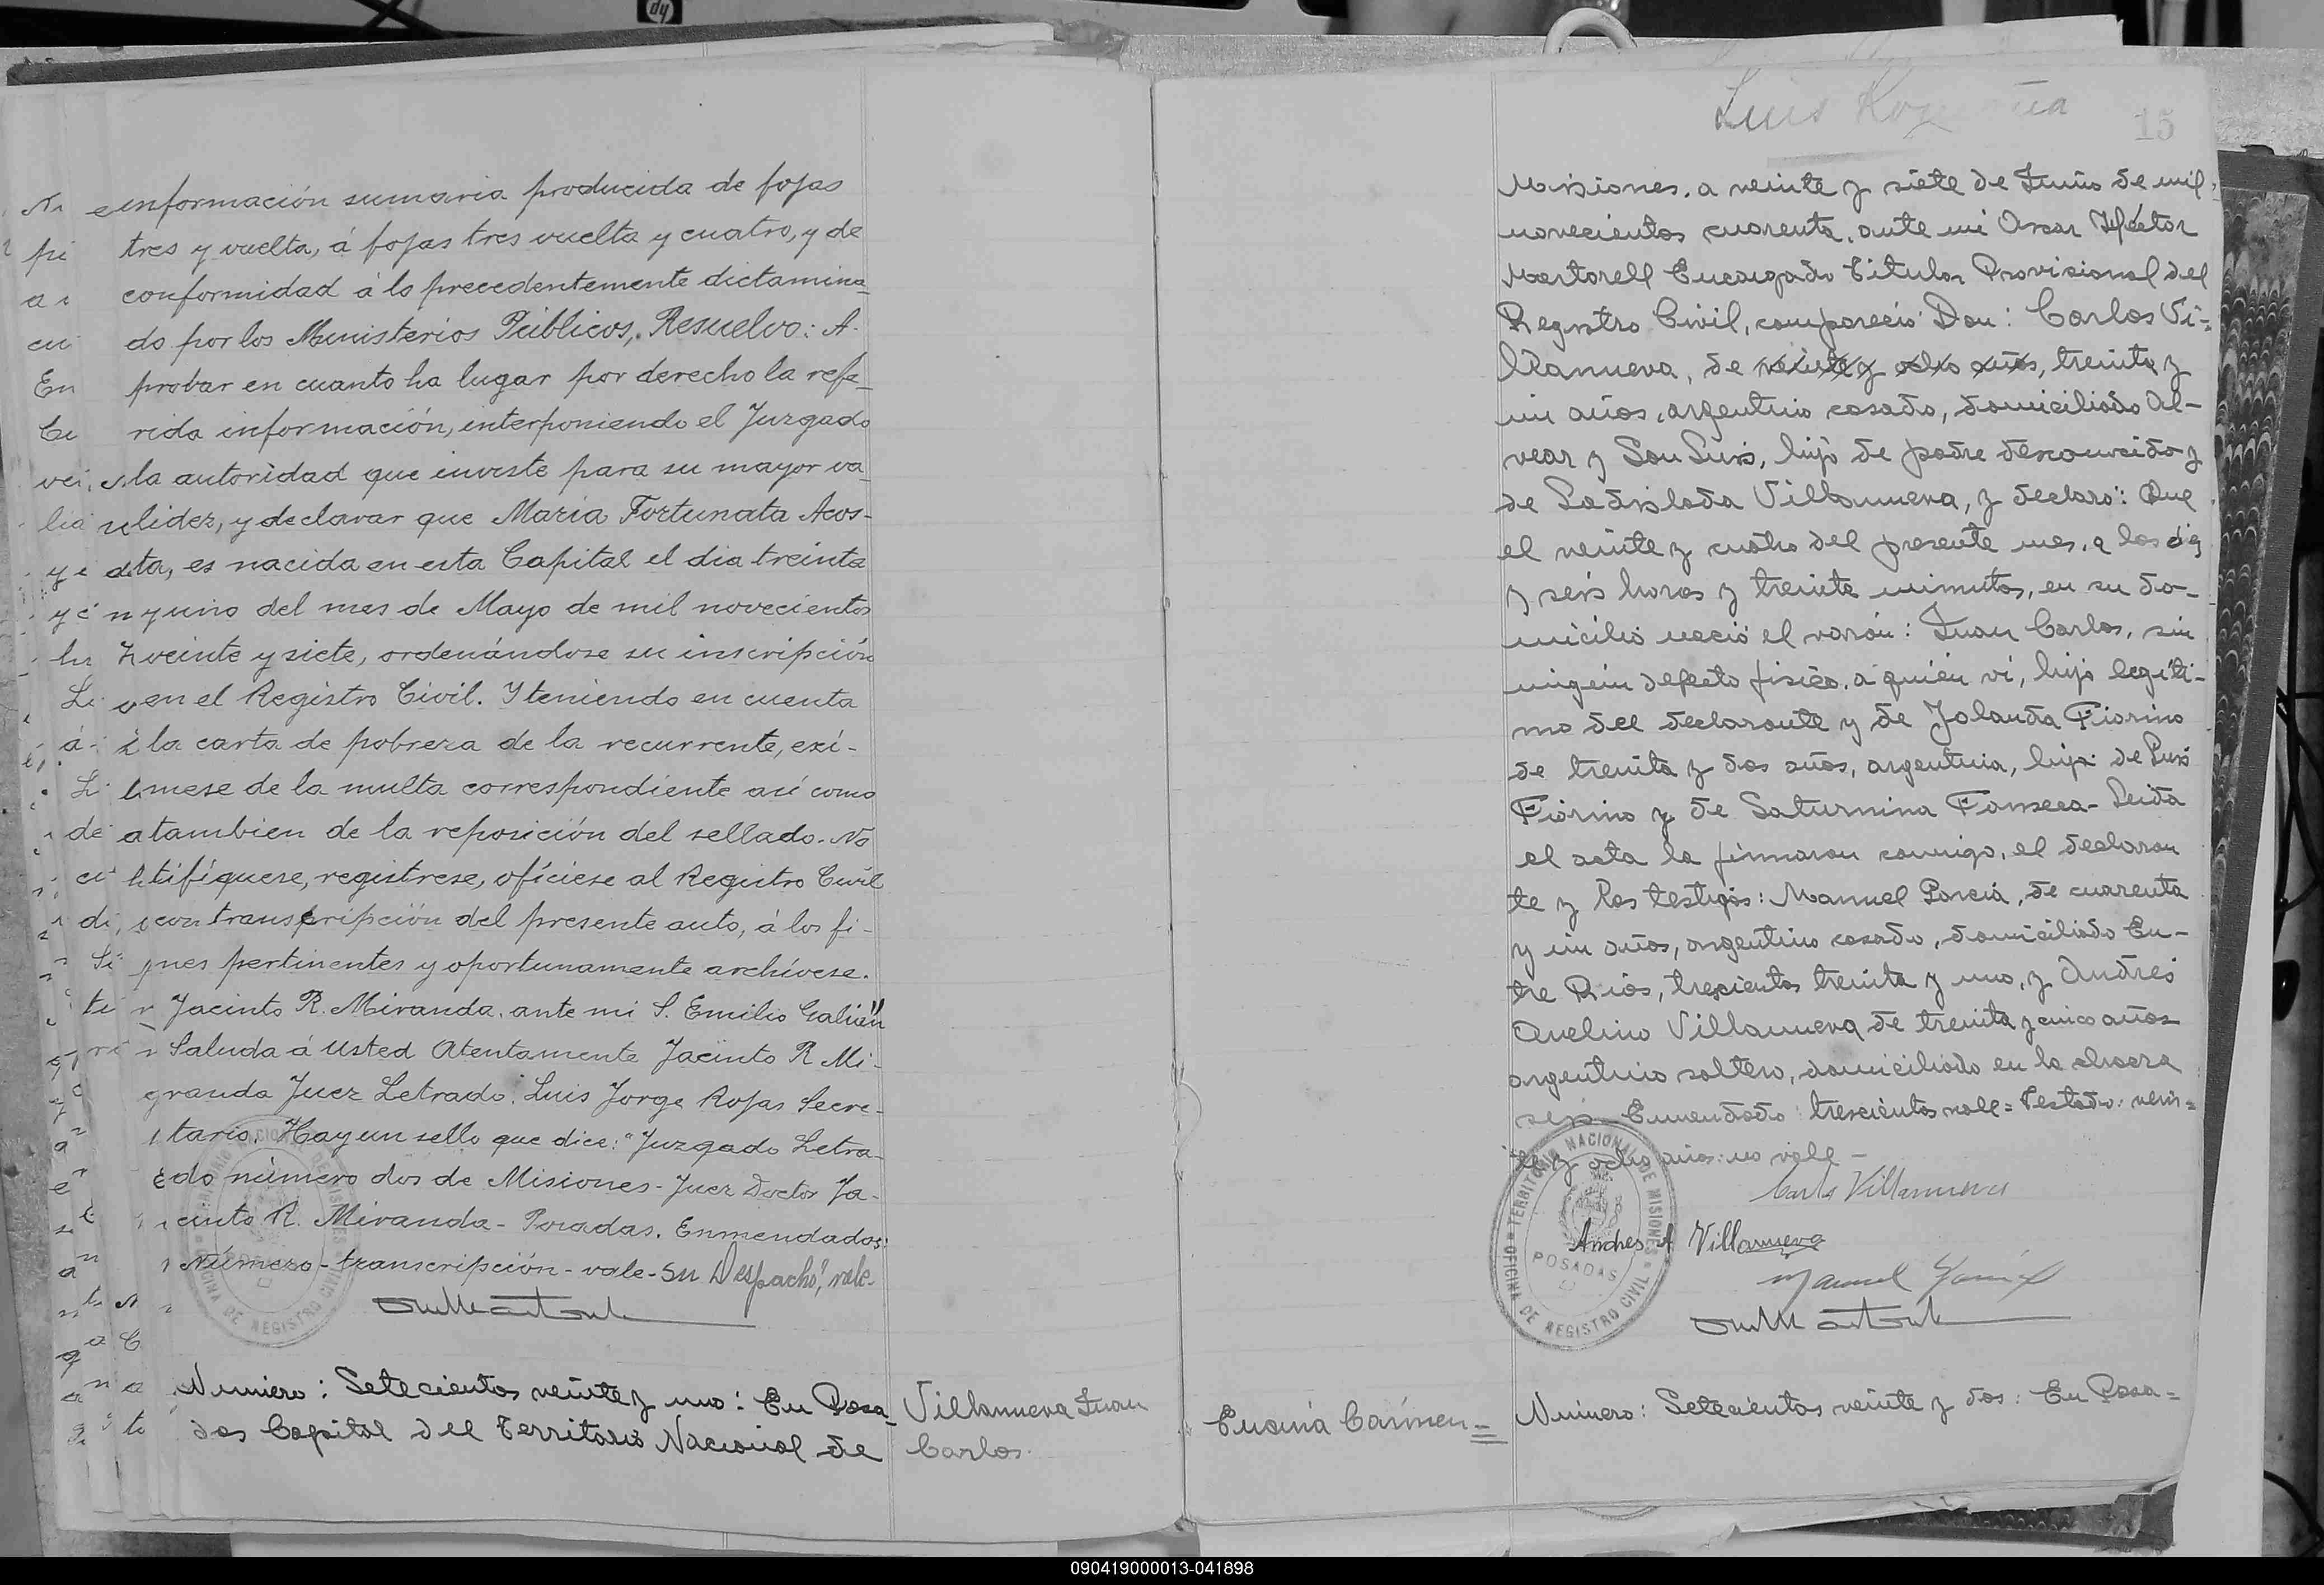 información sumaria producida de fojas
tres y vuelta, á fojas tres vuelta y cuatro, y de
conformidad á lo precedentemente dictamina-
do por los Ministerios Públicos, Resuelvo: A-
probar en cuanto ha lugar por derecho la refe-
rida información, interponiendo el Juzgado
la autoridad que inviste para su mayor va-
lidez, y declarar que María Fortunata Acos-
ta, es nacida en esta Capital el dia treinta
y uno del mes de Mayo de mil novecientos
veinte y siete, ordenándose su inscripción
en el Registro Civil. Y teniendo en cuenta
la carta de pobreza de la recurrente, exí-
mese de la multa correspondiente así como
tambien de la reposición del sellado. No
tifíquese, regístrese, ofíciese al Registro Civil
con transcripción del presente auto, á los fi-
nes pertinentes y oportunamente archívese.
Jacinto R. Miranda. ante mi S. Emilio Galián"
Saluda á Usted Atentamente Jacinto R Mi-
randa Juez Letrado. Luis Jorge Rojas Secre-
tario. Hay un sello que dice: "Juzgado Letra-
do número dos de Misiones - Juez Doctor Ja-
cinto R. Miranda - Posadas. Enmendados:
Número - transcripción - vale - Su Despacho", vale-
Numero: Setecientos veinte y uno: En Posa-
das Capital del Territorio Nacional de
Villanueva Juan
Carlos.
Luis
15
Misiones, a veinte y siete de Junio de mil
novecientos cuarenta, ante mi Oscar Héctor
Martorell Encargado Titular Provisional del
Registro Civil, compareció Don: Carlos Vi-
llanueva, de veinte y ocho años, treinta y
un años, argentino casado, domiciliado Al-
vear y San Luis, hijo de padre desconocido y
de Ladislada Villanueva, y declaró: Que
el veinte y cuatro del presente mes, a las diez
y seis horas y treinta minutos, en su do-
micilio nació el varón: Juan Carlos, sin
ningún defecto físico, a quién ví, hijo legíti-
mo del declarante y de Jolanda Fiorino
de treinta y dos años, argentina, hija de Luis
Fiorino y de Saturnina Fonseca - Leida
el acta la firmaron conmigo, el declaran
te y los testigos: Manuel García, de cuarenta
y un años, argentino casado, domiciliado En-
tre Rios, trescientos treinta y uno, y Andrés
Avelino Villanueva de treinta y cinco años
argentino soltero, domiciliado en la chacra
seis Enmendado: trescientos vale = Testado: vein=
te y ocho años: no vale -
Carlos Villanueva
Andres A Villanueva
Manuel García
OFICINA DE REGISTRO CIVIL TERRITORIO NACIONAL DE MISIONES
POSADAS
Eusavia Cármen =
Número: Setecientos veinte y dos: En Posa=
090419000013-041898